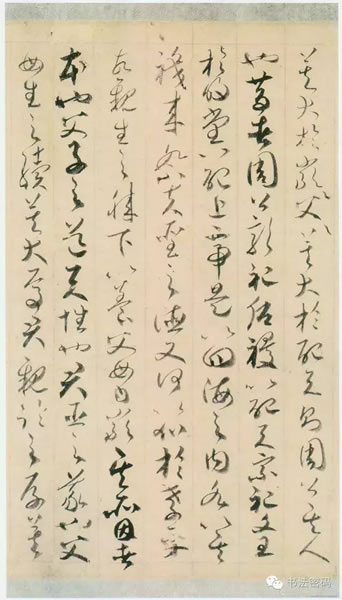 莫大於嚴〻父〻莫大於配天則周公其人
也昔者周公郊祀后稷以配天宗祀文王
於明堂以配上帝是以四海之內各以其
職來夫聖之德又何以加於孝乎
故親生之膝下以養父母日嚴其所因者
本也父子之道天性也君臣之義也父
母生之續莫大焉君親臨之厚莫
书法密码